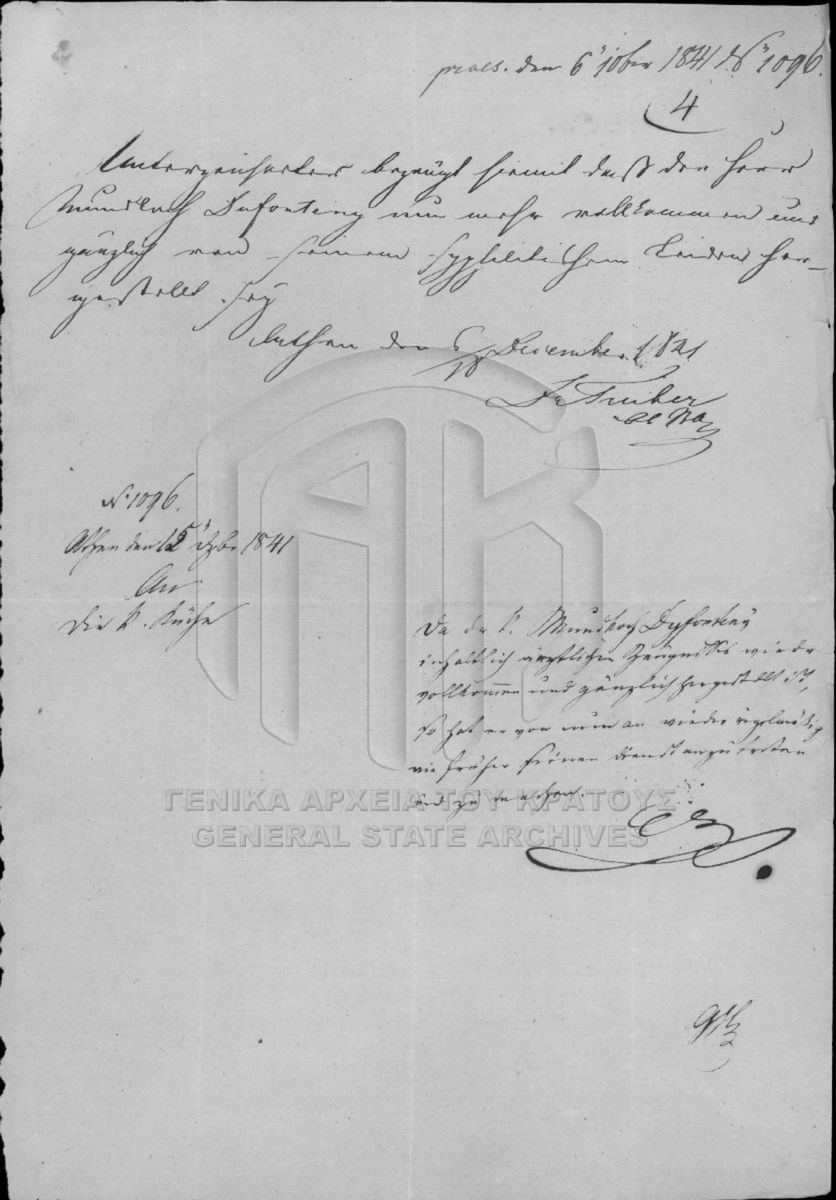 praes. den 6" xober 1841 No 1096.
4
Unterzeichneter bezeugt hiemit daß der Herr
Mundkoch nun mehr vollkommen und
gänzlich von seinem syphilitischen Leiden her-
gestellt sey
Athen den 6/18 December 1841
Dr Treiber
No 1096.
Athen den 1841
An
die k. Küche
Da der k. Mundkoch
inhaltlich ärztlichen Zeugnisses wieder
vollkommen und gänzlich hergestellt ist,
so hat er von nun an wieder regelmäßig
wie früher seinen Dienst anzutreten
und zu machen.
ΓΕΝΙΚΑ ΑΡΧΕΙΑ ΤΟΥ ΚΡΑΤΟΥΣ
GENERAL STATE ARCHIVES